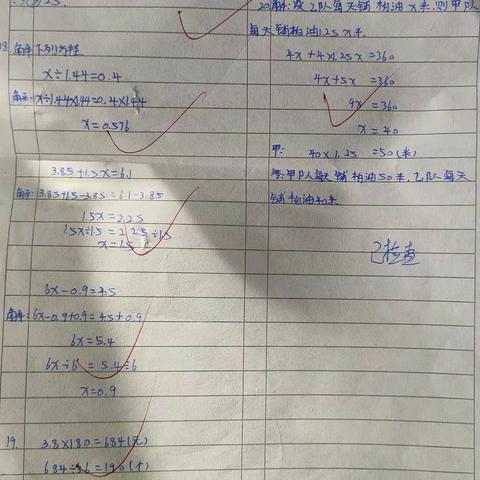 18. 解下列方程
x÷1.44=0.4
解:x÷1.44×1.44=0.4×1.44
x=0.576
3.85+1.5x=6.1
解:3.85+1.5-3.85=6.1-3.85
1.5x=2.25
1.5x÷1.5=2.25÷1.5
x=1.5
6x-0.9=4.5
解:6x-0.9+0.9=4.5+0.9
6x=5.4
6x÷6=5.4÷6
x=0.9
19. 3.8×180=684(元)
684÷3.6=190(个)
20.解:设乙队每天铺柏油x米,则甲队
每天铺柏油1.25x米.
4x+4×1.25x=360
4x+5x=360
9x=360
x=40
甲: 40×1.25=50(米)
答:甲队每天铺柏油50米,乙队每天
铺柏油40米
已检查